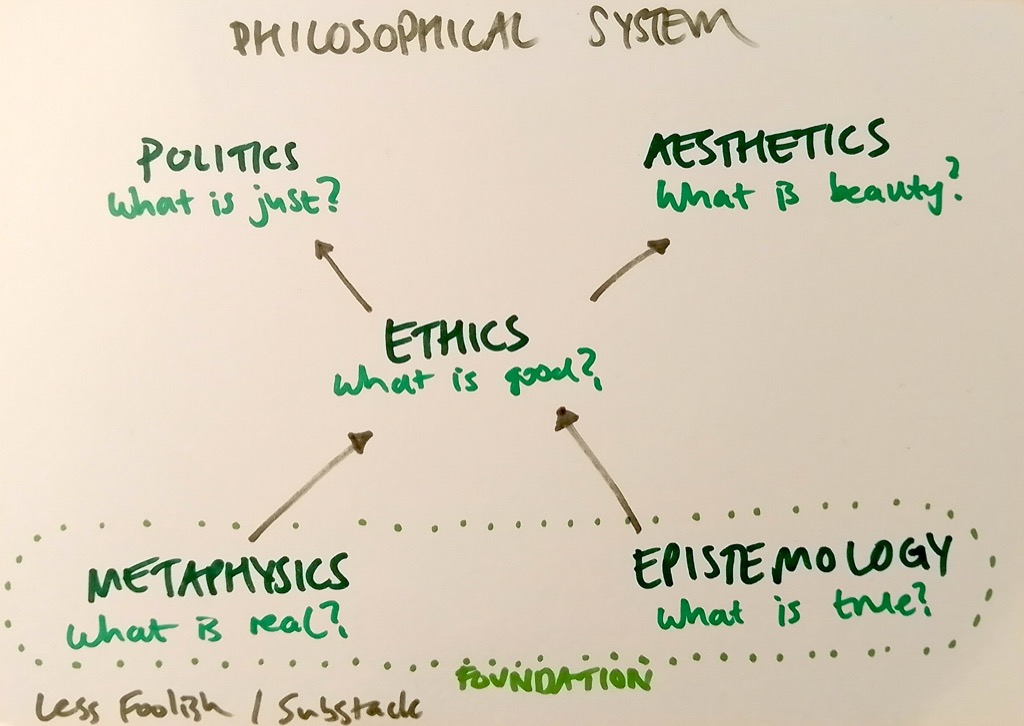 PHILOSOPHICAL SYSTEM
POLITICS
What is just?
AESTHETICS
What is beauty?
ETHICS
What is good?
METAPHYSICS
What is real?
EPISTEMOLOGY
What is true?
FOUNDATION
Less Foolish / Substack